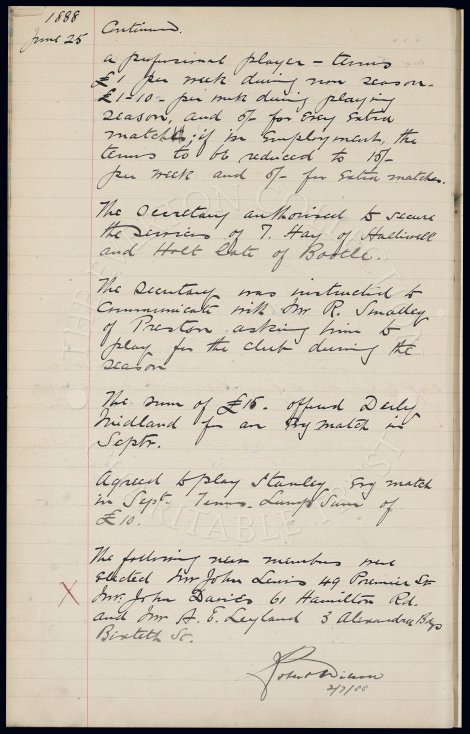 1888
June 25 Continued.
a professional player - terms
£1 per week during non season.
£1-10- per week during playing
season, and 5/- for Evry Extra
match; if in Employment, the
terms to be reduced to 15/-
per week and 5/- for Extra matches.
The Secretary authorised to secure
the services of T. Hay of Halliwell
and Holt late of Bootle.
The Secretary was instructed to
Communicate with Mr R. Smalley
of Preston asking him to
play for the club during the
season
The sum of £15. offered Derby
Midland for an Evg match in
Septr.
Agreed to play Stanley Evg match
in Sept Terms. Lump Sum of
£10.
The following new members were
elected Mr John Lewis 49 Premier St
X Mr. John Davies 61 Hamilton Rd.
and Mr A. E. Leyland 3 Alexandra Bdgs
St.
2/7/88
EVERTON COLLECTION
CHARITABLE TRUST